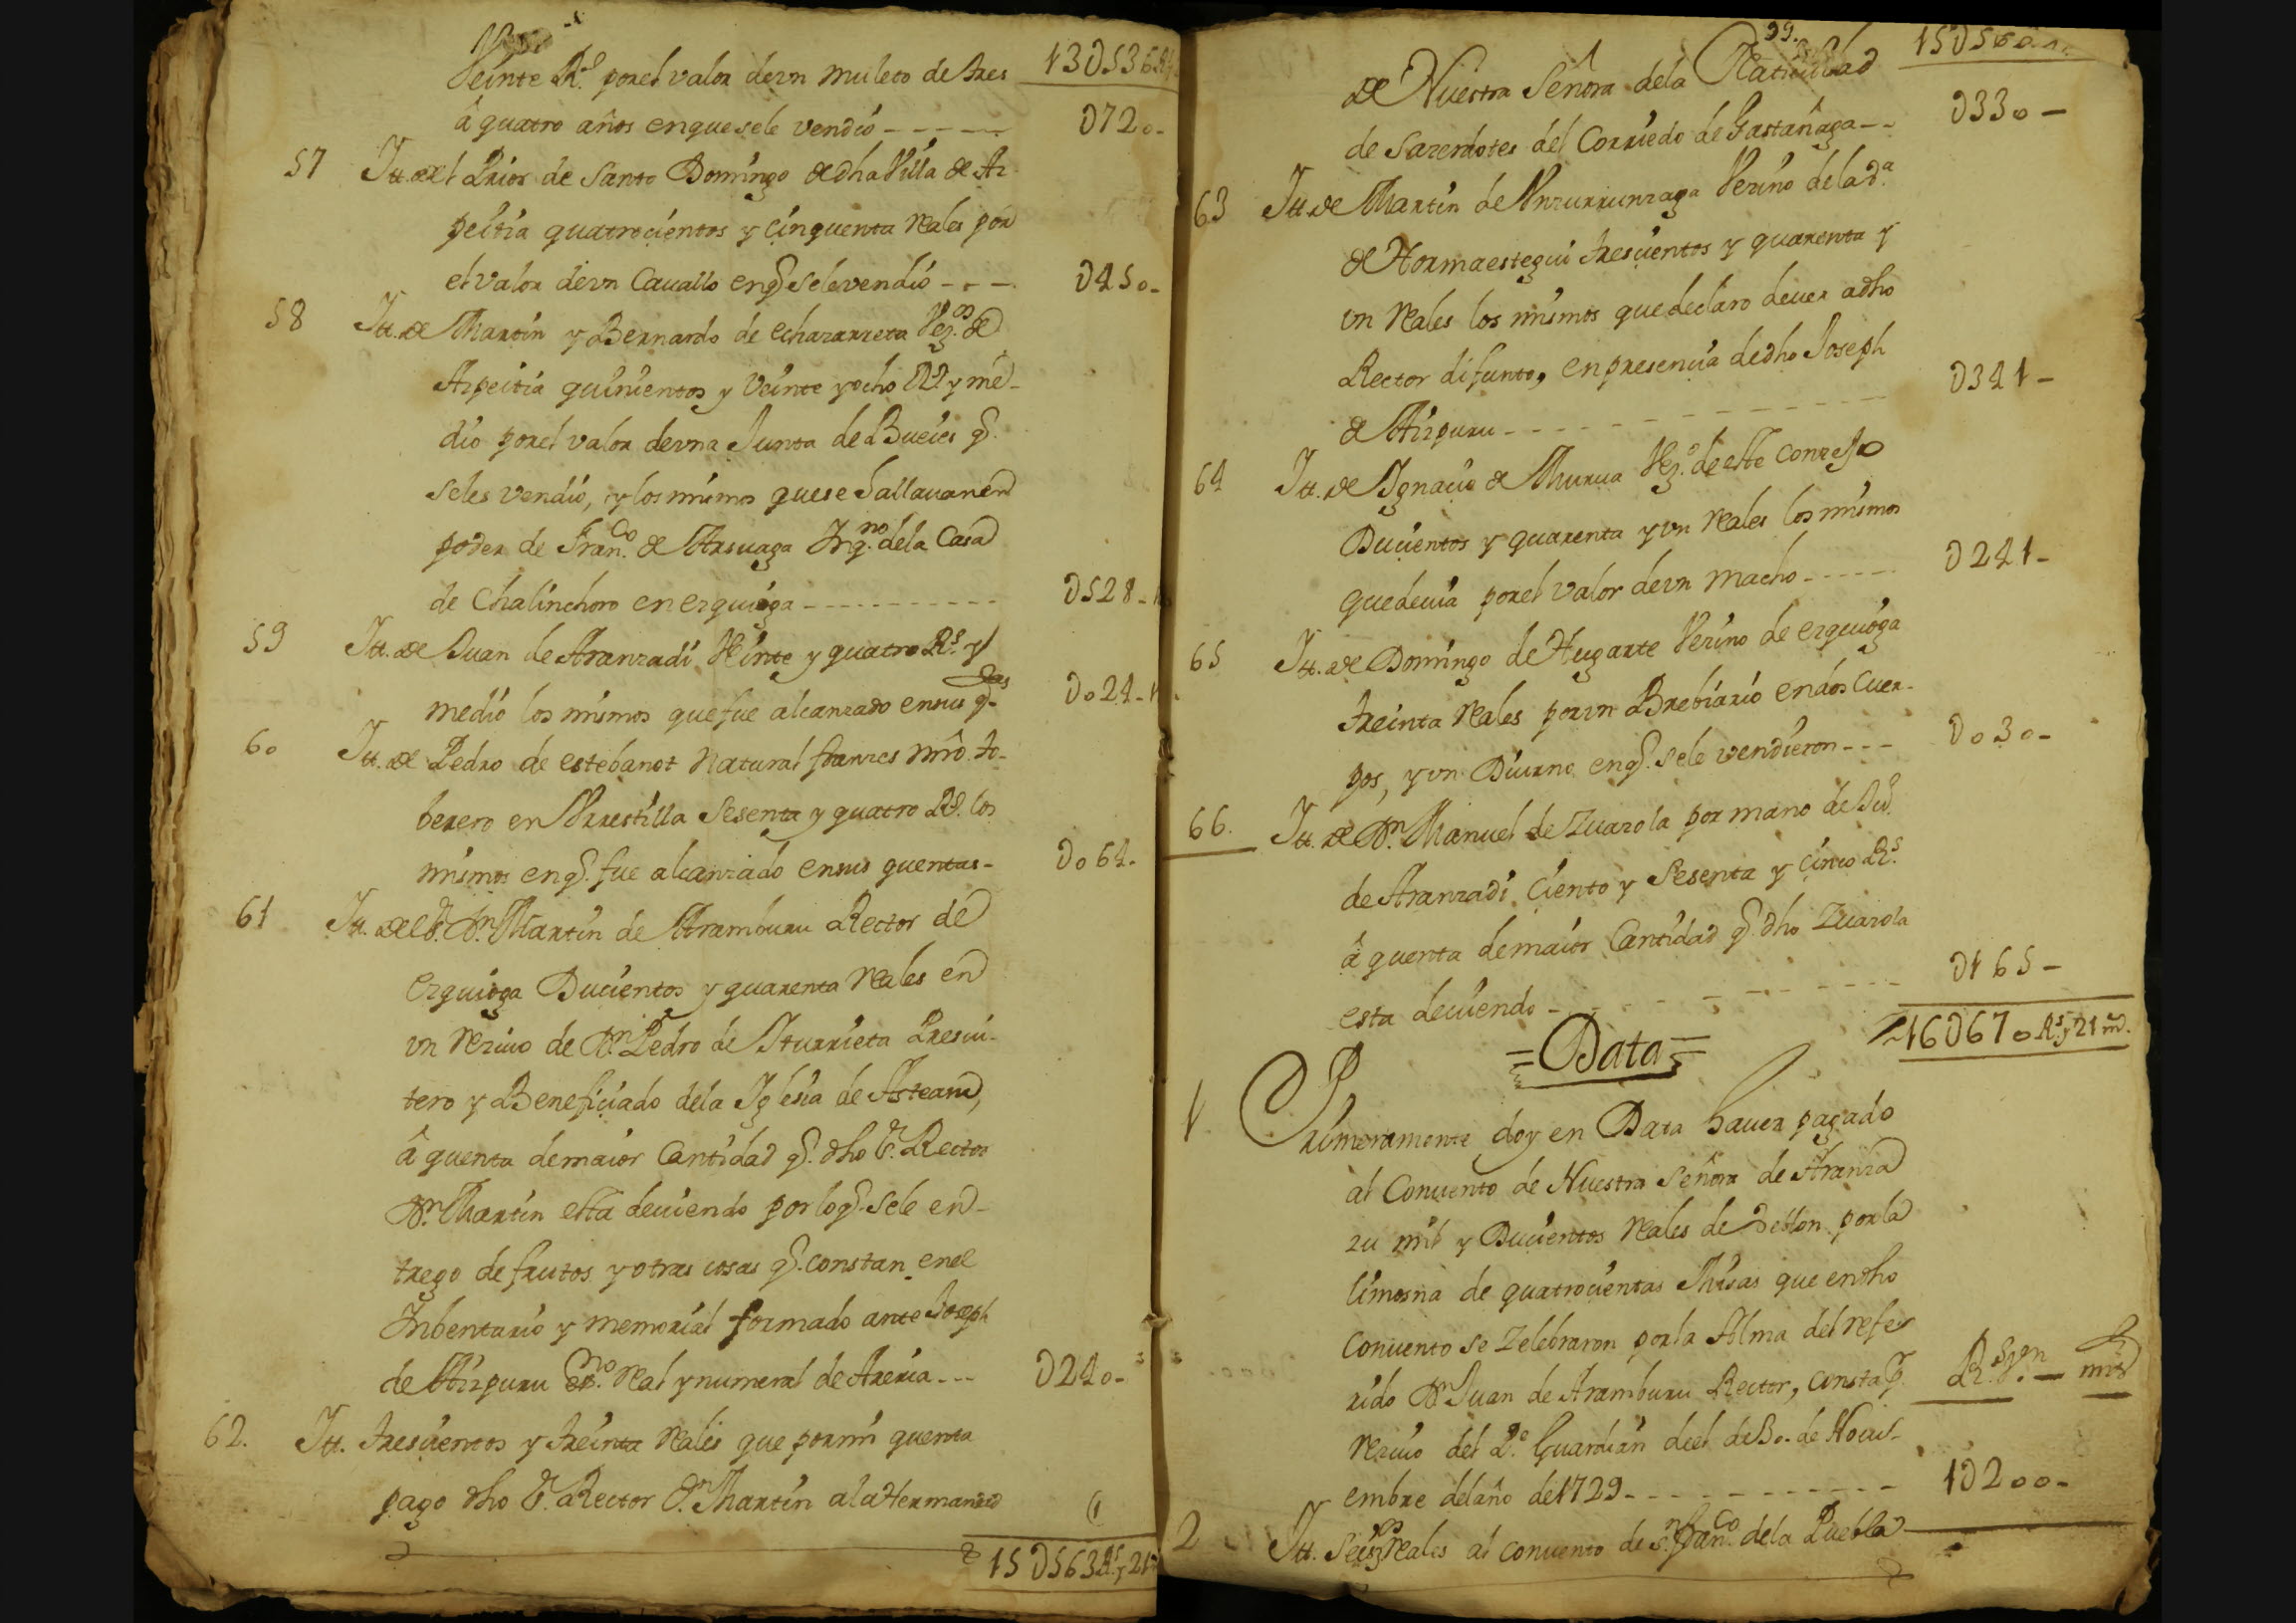 Veinte R.s por el valor de vn muleto de tres
13U536 Rs
â quatro años en que se le vendió - - - - -
U720-
57 Itt. de el Prior de Santo Domingo de dha Villa de Az
peitia quatrocientos y cinquenta Reales por
el valor de vn Cauallo en q.e se le vendió - - -
U450-
58 Itt. de Martin y Bernardo de echazarreta Vez.os de
Azpeitia quinientos y Veinte y ocho RR y me-
dio por el valor de vna Junta de Bueies q.e
se les vendió, y los mismos que se hallauan en
poder de Fran.co de Arsuaga Inq.no de la Casa
de Chalinchoro en ezquioga - - - - - - - - - - -
U528-
59 Itt. de Juan de Aranzadi Veinte y quatro R.s y
medio los mismos que fue alcanzado en sus q.tas
U024-
60 Itt. de Pedro de estebanot Natural franzes mro. to-
berero en Vrrestilla Sesenta y quatro Rs. los
mismos en q.e fue alcanzado en sus quentas-
U064-
61 Itt. de el S.r D.n Martin de Aramburu Rector de
ezquioga Ducientos y quarenta Reales en
vn Reziuo de D.n Pedro de Iturrieta Presui-
tero y Beneficiado de la Iglesia de Asteasu,
â quenta de maior Cantidad q.e dho S.r Rector
D.n Martin esta deuiendo por lo q.e se le en-
trego de frutos y otras cosas q.e constan en el
Inbentario y memorial formado ante Joseph
de Aizpuru es.no Real y numeral de Areria - - -
U240-
62. Itt. trescientos y treinta Reales que por mi quenta
pago dho S.r Rector D.n Martin a la Hermandad
15U563 R.s y 21
99.
15U560
de Nuestra Señora de la Natiuidad
de Sazerdotes del Corriedo de Gastañaga - -
U330-
63 Itt. de Martin de Vnzurrunzaga Vezino de la d.a
de Hormaestegui trescientos y quarenta y
vn Reales los mismos que declaro deuer a dho
Rector difunto, en presencia de dho Joseph
de Aizpuru - - - - - - - - - - -
U341-
64 Itt. de Ignacio de Murua Vez.o de este Conzejo
Ducientos y quarenta y vn Reales los mismos
que deuia por el valor de vn macho - - - - - -
U241-
65 Itt. de Domingo de Hugarte Vezino de ezquioga
treinta Reales por vn Brebiario en dos Cuer-
pos, y vn Diurno en q.e se le vendieron - - -
U030-
66. Itt. de D.n Manuel de Zuazola por mano de Ju.o
de Aranzadi Ciento y Sesenta y cinco R.s
â quenta de maior Cantidad q.e dho Zuazola
esta deuiendo - - - - - - - - - -
U165-
16U670 R.s y 21 m.
= Data =
1 Primeramente doy en Data hauer pagado
al Conuento de Nuestra Señora de Aranza
zu mil y Ducientos Reales de Vellon por la
limosna de quatrocientas Misas que en dho
Conuento se Zelebraron por la Alma del refe
rido D.n Juan de Aramburu Rector, consta p.r
R.s V.on - mrs
Reziuo del P.e Guardian de el de 30. de Noui-
embre del año de 1729 - - - - - - - - - - -
1U200-
2 Itt. Seis Reales al conuento de S.n Fran.co de la Puebla